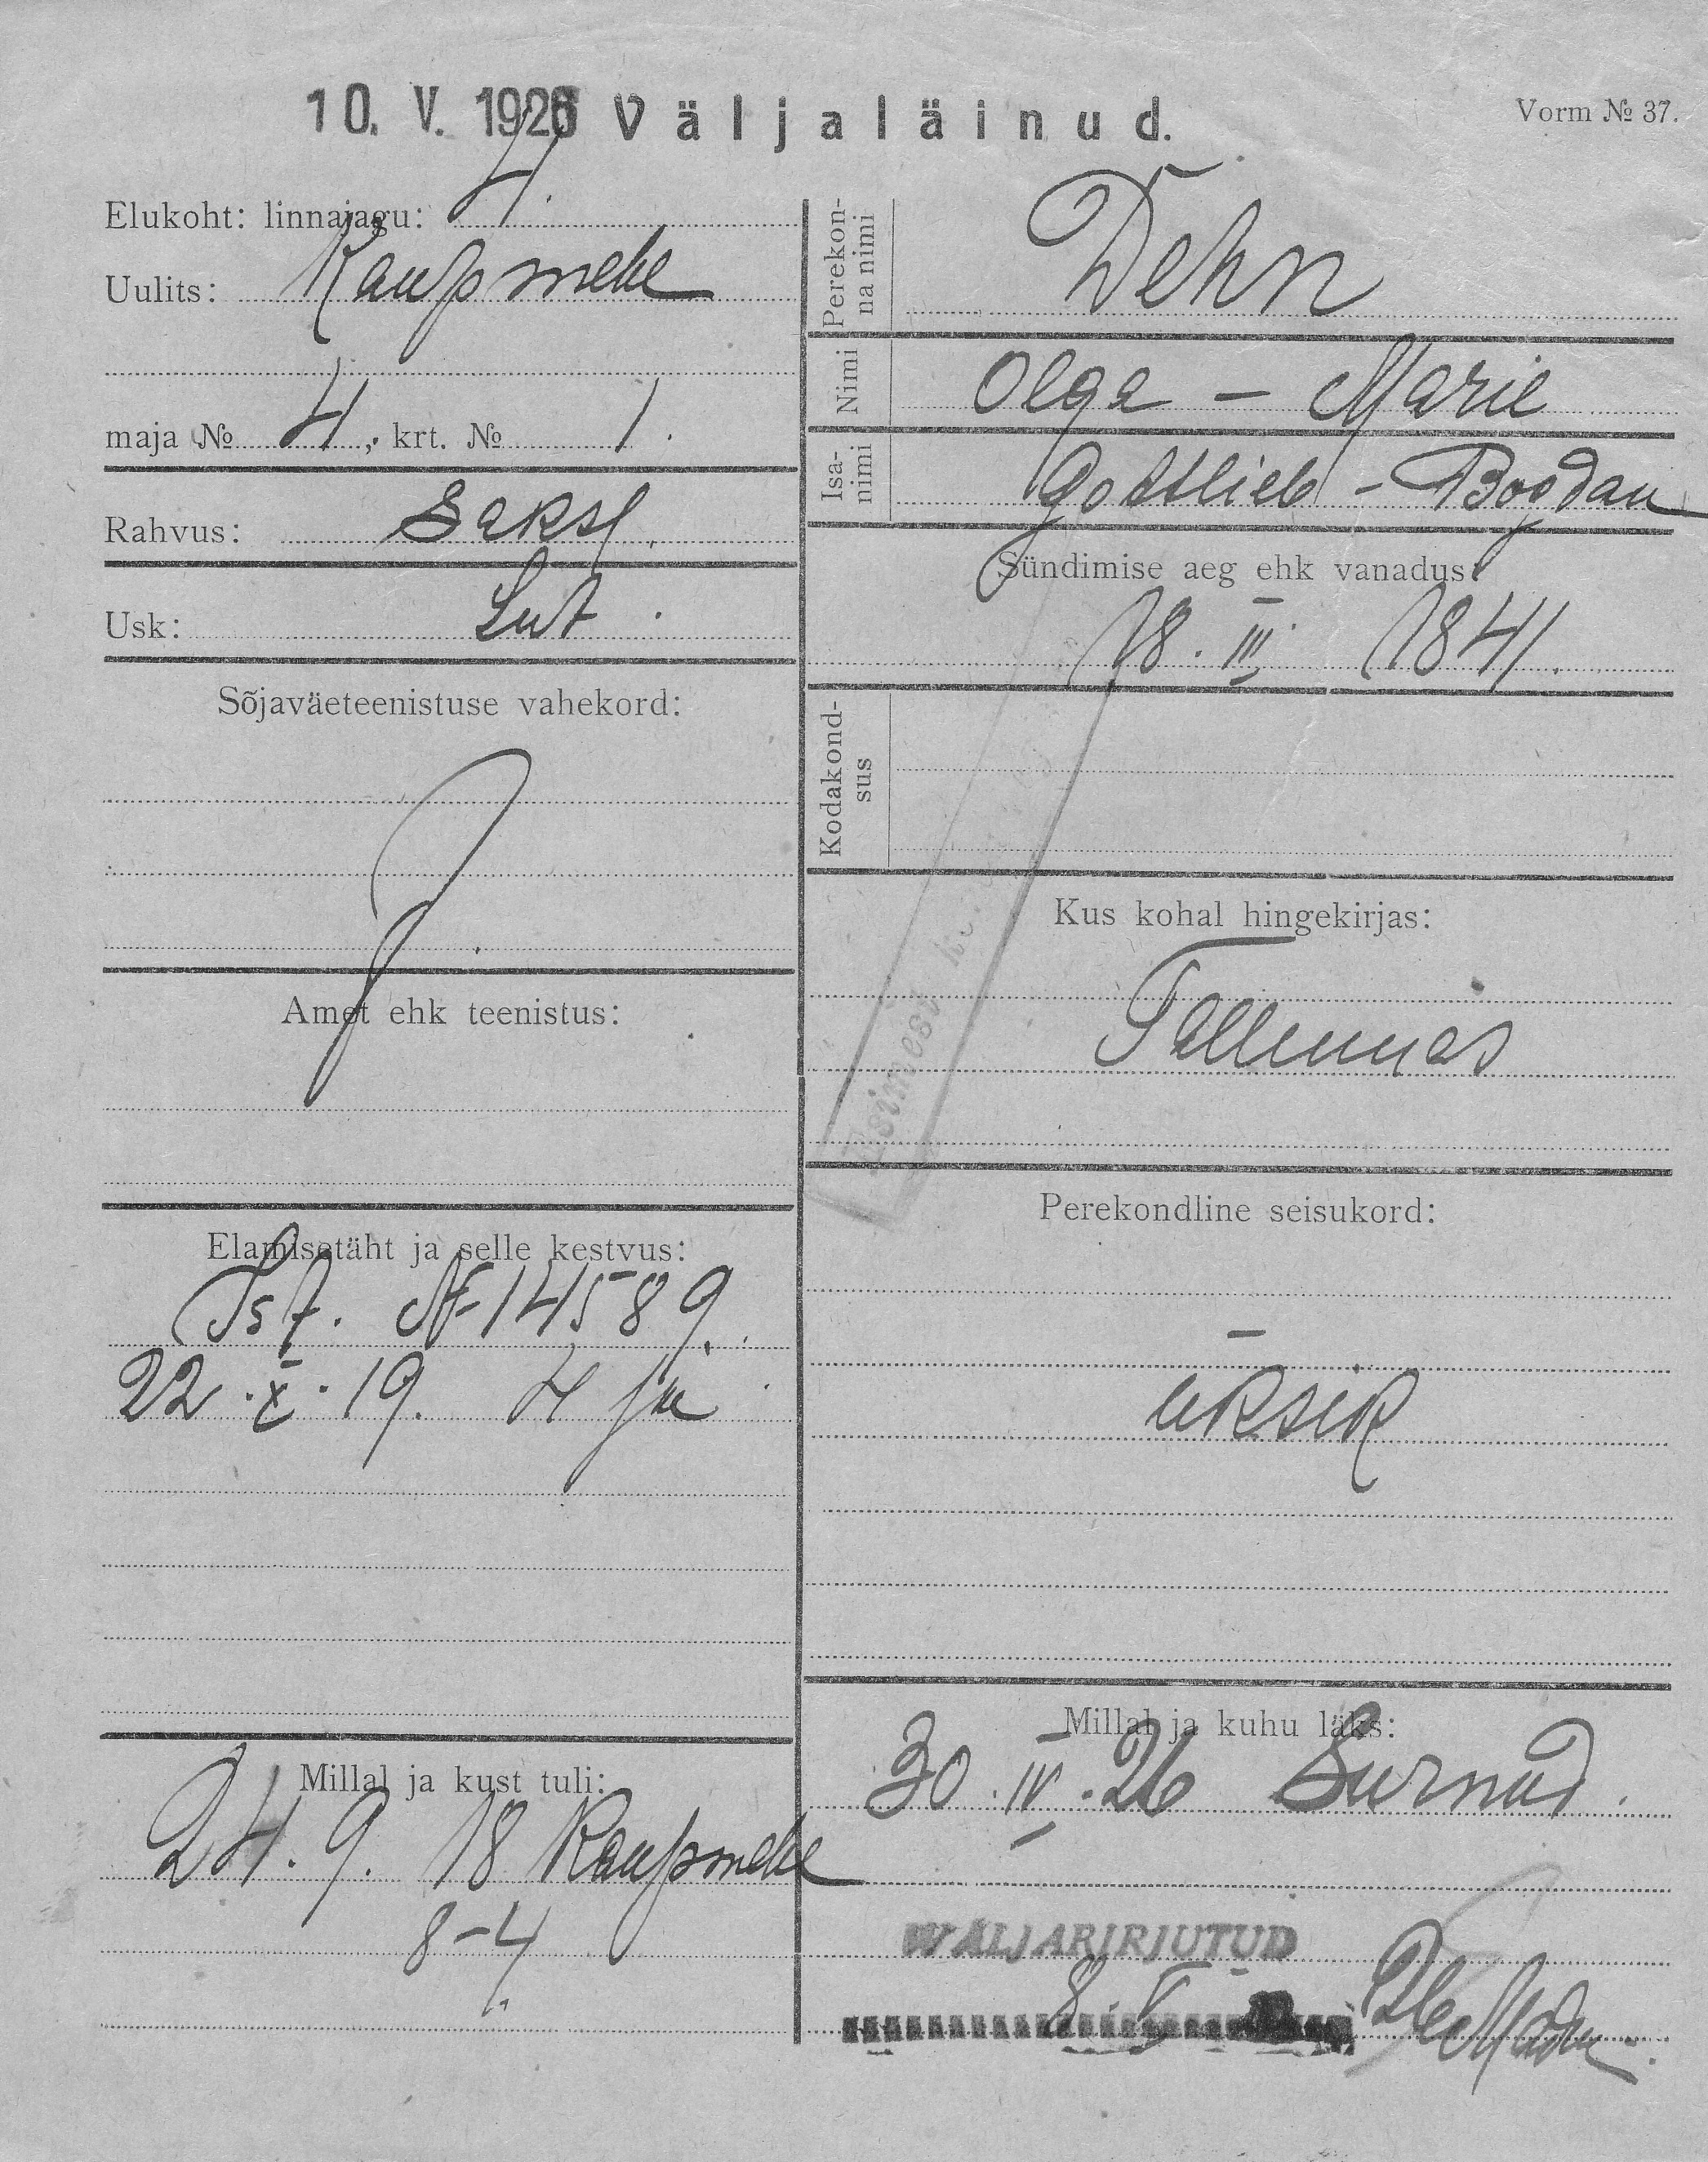 10. V. 1926 Väljaläinud.
Vorm № 37.
Elukoht: linnajagu: 4.
Uulits: Kaupmehe
maja № 4, krt. № 1.
Rahvus: Saksl.
Usk: Lut.
Sõjaväeteenistuse vahekord:
Amet ehk teenistus:
Elamisetäht ja selle kestvus:
Tst. № 14589.
22.X.19. 4 jsk
Millal ja kust tuli:
24.9.18 Kaupmehe
8-4
Perekon-
na nimi
Dehn
Nimi
Olga - Marie
Isa-
nimi
Gottlieb - Bogdan
Sündimise aeg ehk vanadus
18. III. 1841.
Kodakond-
sus
Esimest
Kus kohal hingekirjas:
Tallinnas
Perekondline seisukord:
üksik
Millal ja kuhu läks:
30.IV.26 Surnud.
WÄLJAKIRJUTUD
8. V 26